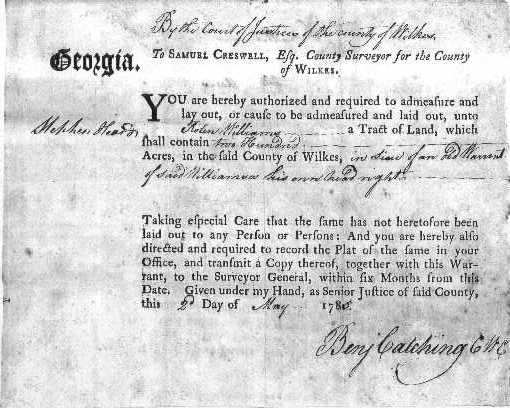 By the Court of Justices of the county of Wilkes.
Georgia.
To Samuel Creswell, Esq. County Surveyor for the County
of Wilkes.
YOU are hereby authorized and required to admeasure and
lay out, or cause to be admeasured and laid out, unto
Stephen Heard
Williams a Tract of Land, which
shall contain two Hundred
Acres, in the said County of Wilkes, in lieu of an old Warrant
of said Williams his own head right
Taking especial Care that the same has not heretofore been
laid out to any Person or Persons: And you are hereby also
directed and required to record the Plat of the same in your
Office, and transmit a Copy thereof, together with this War-
rant, to the Surveyor General, within six Months from this
Date. Given under my Hand, as Senior Justice of said County,
this 2d Day of May 178
Benj Catching C W C